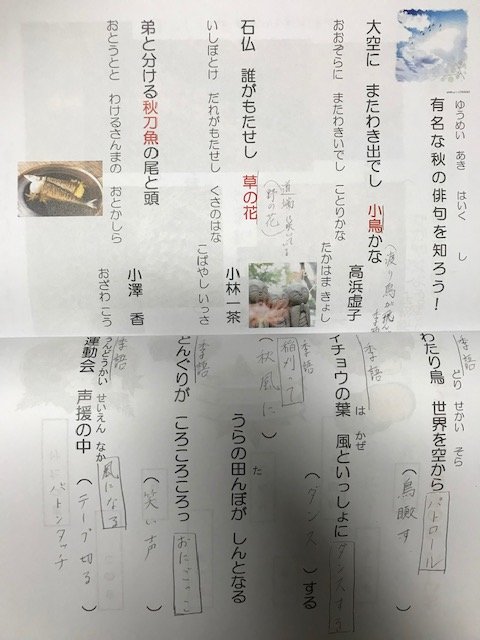 有名な秋の俳句を知ろう！
ゆうめい あき はいく し
大空に またわき出でし 小鳥かな
おおぞらに またわきいでし ことりかな
高浜虚子
たかはま きょし
石仏 誰がもたせし 草の花
いしぼとけ だれがもたせし くさのはな
道端
野の花
小林一茶
こばやし いっさ
弟と分ける秋刀魚の尾と頭
おとうとと わけるさんまの おとかしら
小澤 香
おざわ こう
わたり鳥 世界を空から
どり せかい そら
パトロール
（鳥瞰す ）
季語
イチョウの葉 風といっしょに
は かぜ
ダンスする
（ダンス）する
季語
稲刈って
（秋風に ）
うらの田んぼが しんとなる
た
季語
どんぐりが ころころころっ
おにごっこ
（笑い声 ）
季語
運動会 声援の中
うんどうかい せいえん なか
風になる
（テープ切る ）
バトンタッチ
季語